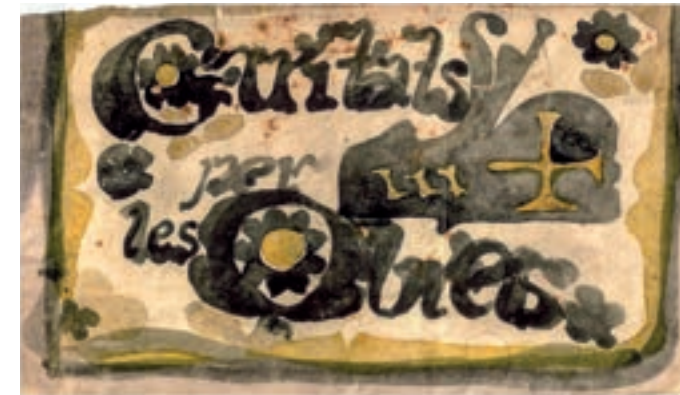 Caritats
per
les Obres